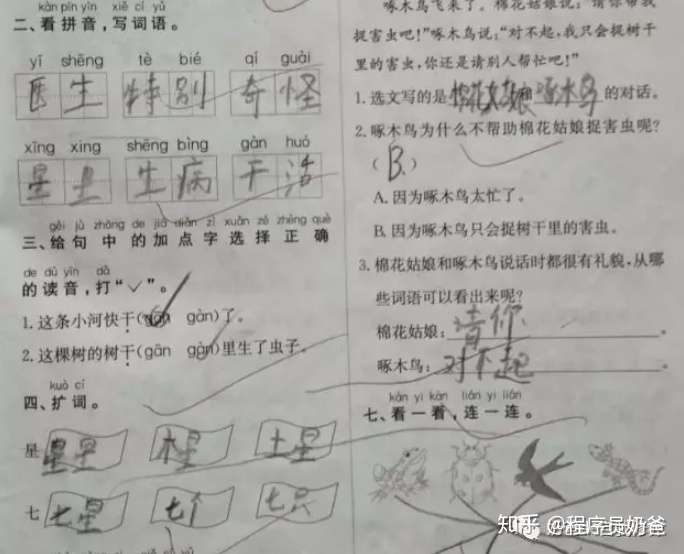 kàn pīn yīn xiě cí yǔ
二、看拼音,写词语。
yī shēng tè bié qí guài
医生 特别 奇怪
xīng xing shēng bìng gàn huó
星星 生病 干活
gěi jù zhōng de jiā diǎn zì xuǎn zé zhèng què
三、给句中的加点字选择正确
de dú yīn dǎ
的读音,打“✓”。
1.这条小河快干( gàn)了。
2.这棵树的树干(gān gàn)里生了虫子。
kuò cí
四、扩词。
星 星星 木星 土星
七 七星 七个 七只
啄木鸟飞来了。棉花姑娘说:“请你帮我
捉害虫吧!”啄木鸟说:“对不起,我只会捉树干
里的害虫,你还是请别人帮忙吧!”
1.选文写的是棉花姑娘和啄木鸟的对话。
2.啄木鸟为什么不帮助棉花姑娘捉害虫呢?
(B.)
A.因为啄木鸟太忙了。
B.因为啄木鸟只会捉树干里的害虫。
3.棉花姑娘和啄木鸟说话时都很有礼貌,从哪
些词语可以看出来呢?
棉花姑娘:请你。
啄木鸟:对不起。
kàn yi kàn lián yi lián
七、看一看,连一连。
知乎 @程序员奶爸